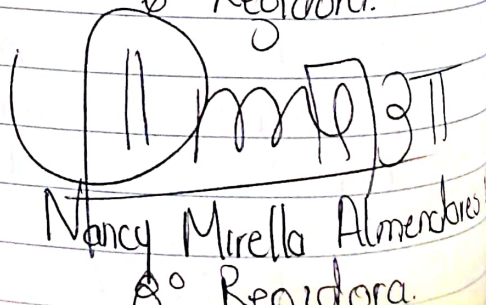 Regidora.
Nancy Mirella Almendares
8° Regidora.